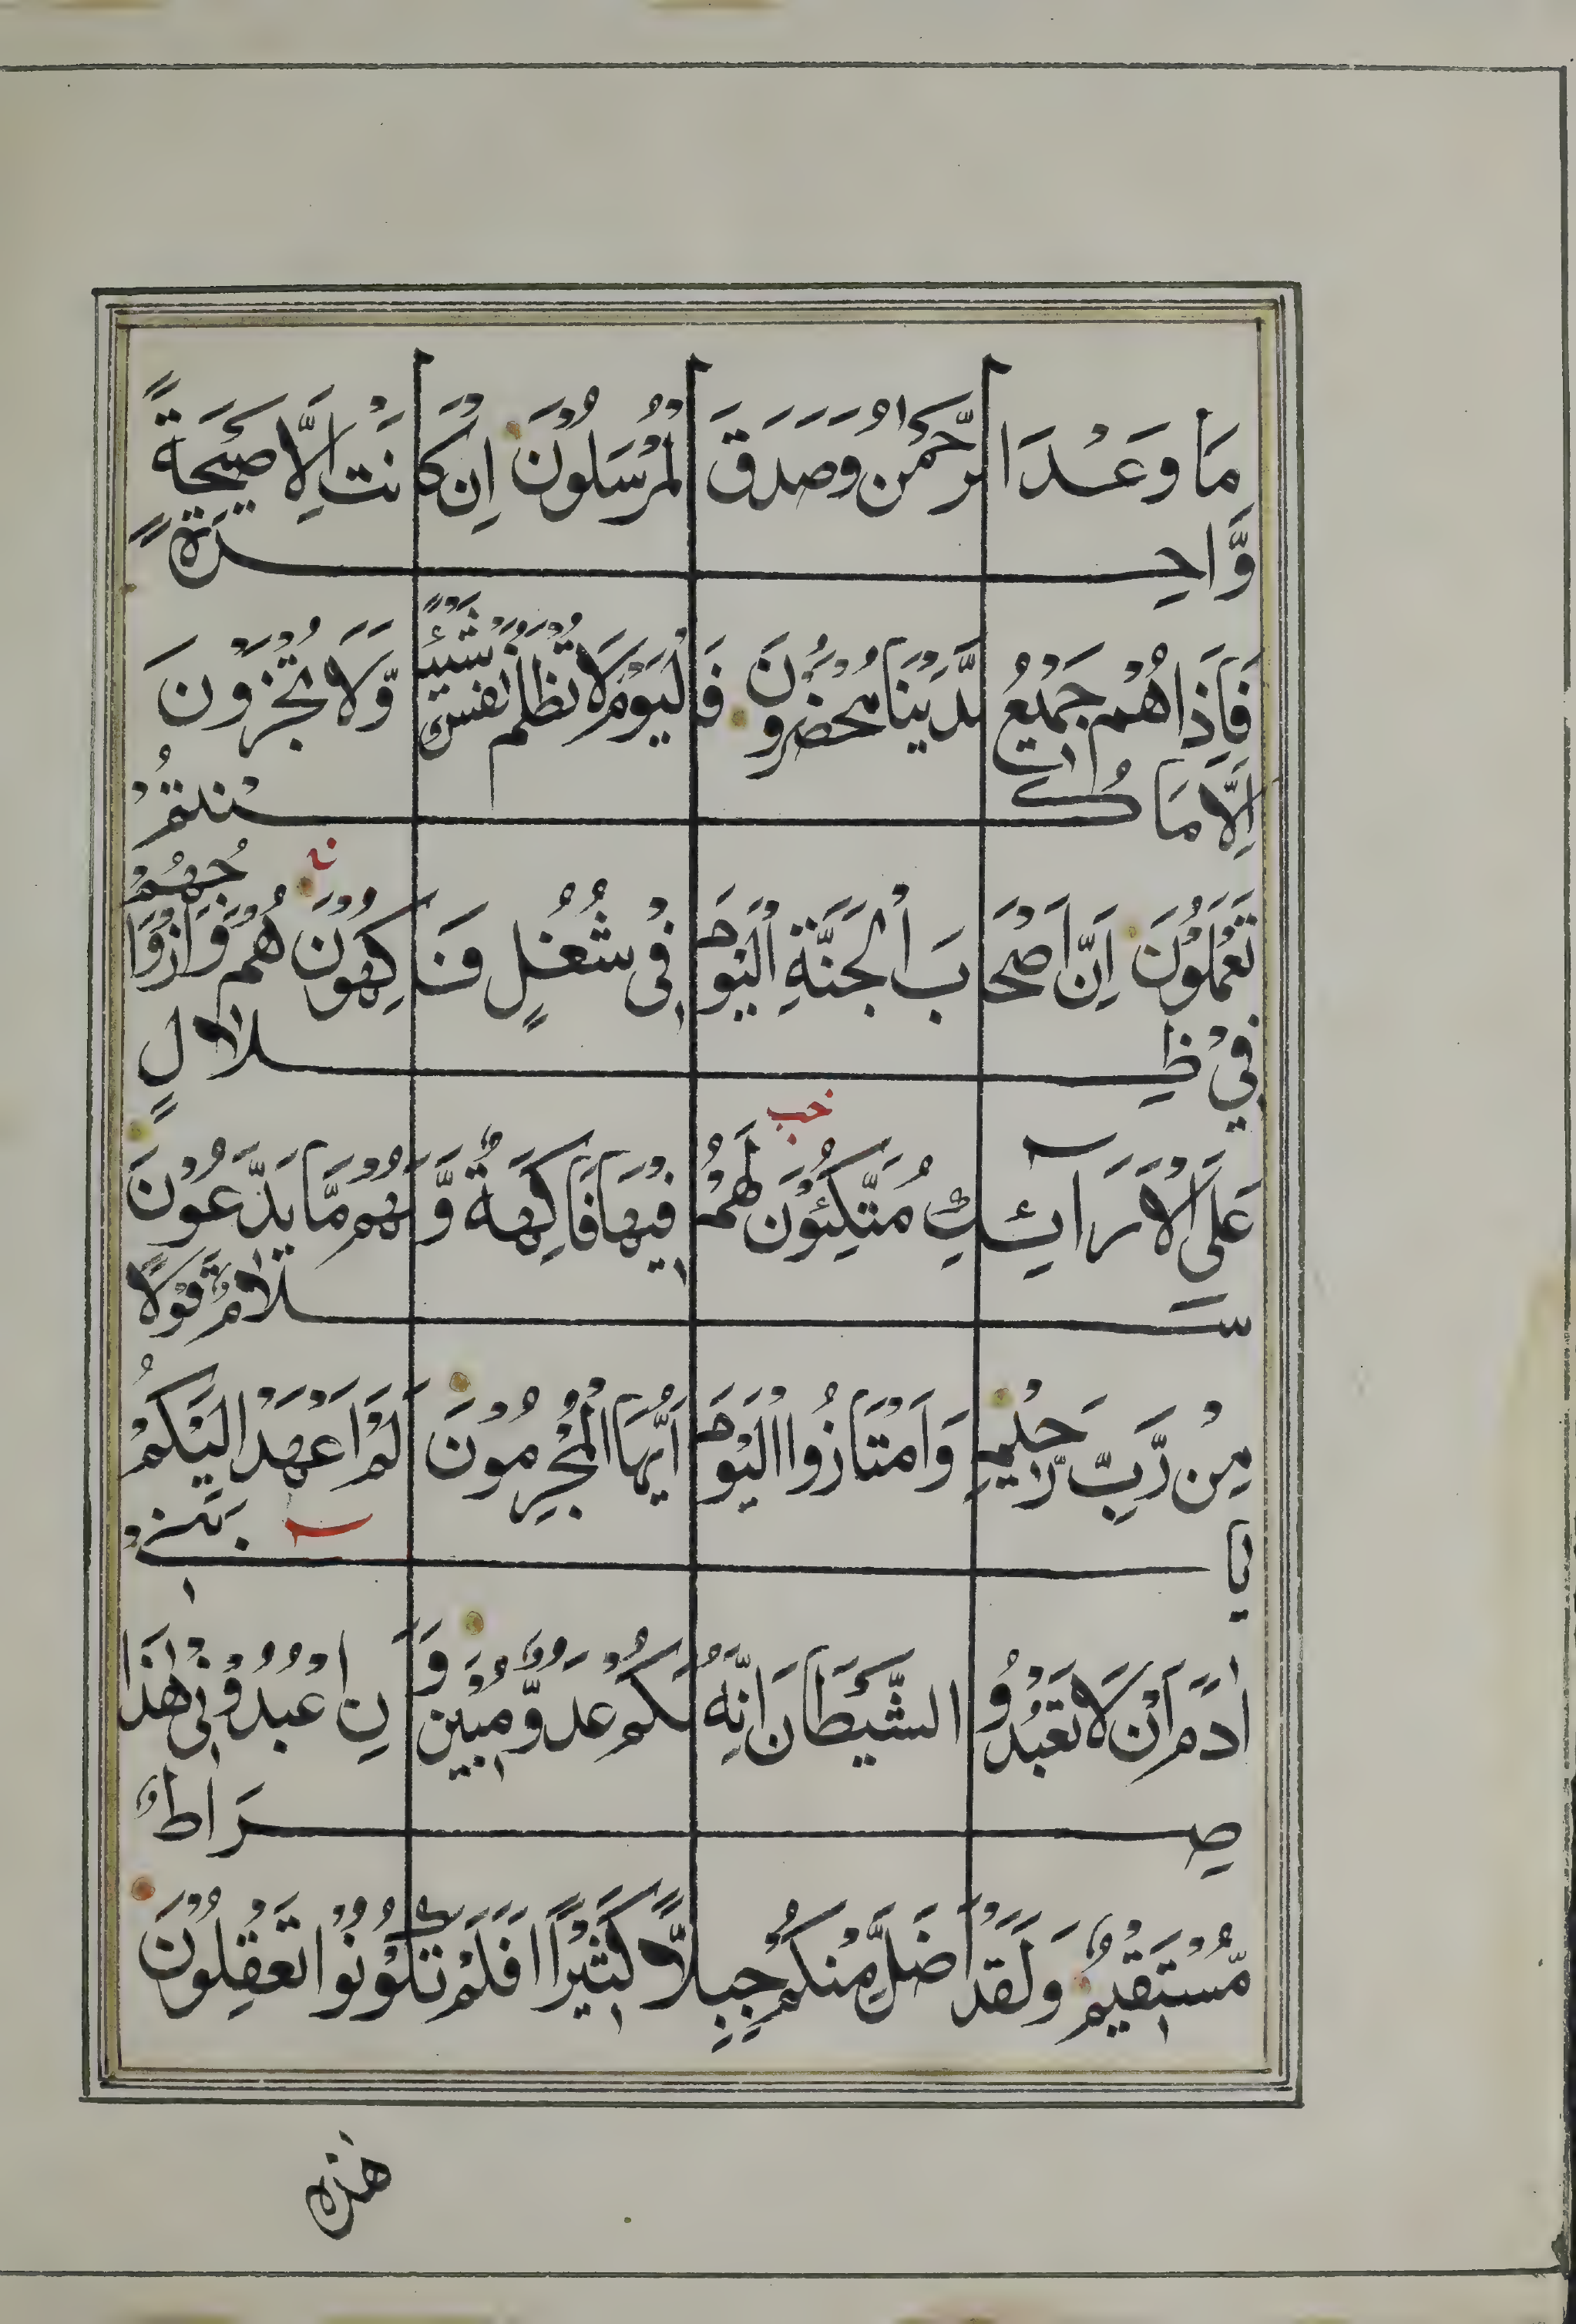 مَا وَعَدَ الرَّحْمٰنُ وَصَدَقَ الْمُرْسَلُوْنَ اِنْ كَانَتْ اِلَّا صَيْحَةً
وَّاحِدَةً
فَاِذَا هُمْ جَمِيْعٌ لَّدَيْنَا مُحْضَرُوْنَ فَالْيَوْمَ لَا تُظْلَمُ نَفْسٌ شَيْئًا وَّلَا تُجْزَوْنَ
اِلَّا مَا كُنْتُمْ
تَعْمَلُوْنَ اِنَّ اَصْحَابَ الْجَنَّةِ الْيَوْمَ فِيْ شُغُلٍ فَاكِهُوْنَ هُمْ وَاَزْوَاجُهُمْ
فِيْ ظِلَالٍ
عَلَى الْاَرَآئِكِ مُتَّكِئُوْنَ لَهُمْ فِيْهَا فَاكِهَةٌ وَّلَهُمْ مَّا يَدَّعُوْنَ
سَلَامٌ قَوْلًا
مِنْ رَّبٍّ رَّحِيْمٍ وَامْتَازُوا الْيَوْمَ اَيُّهَا الْمُجْرِمُوْنَ اَلَمْ اَعْهَدْ اِلَيْكُمْ
يَا بَنِيْ
اٰدَمَ اَنْ لَا تَعْبُدُوا الشَّيْطَانَ اِنَّهٗ لَكُمْ عَدُوٌّ مُّبِيْنٌ وَّاَنِ اعْبُدُوْنِيْ هٰذَا
صِرَاطٌ
مُّسْتَقِيْمٌ وَلَقَدْ اَضَلَّ مِنْكُمْ جِبِلًّا كَثِيْرًا اَفَلَمْ تَكُوْنُوْا تَعْقِلُوْنَ
هٰذِهِ